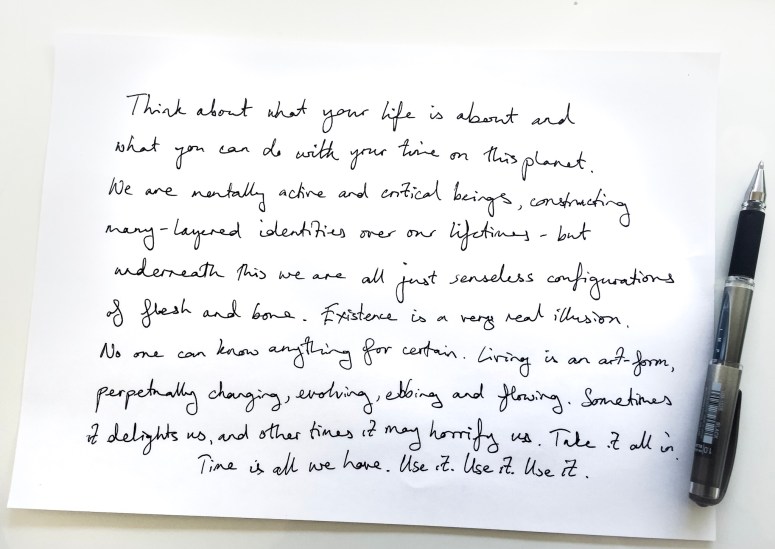 Think about what your life is about and
what you can do with your time on this planet.
We are mentally active and critical beings, constructing
many-layered identities over our lifetimes - but
underneath this we are all just senseless configurations
of flesh and bone. Existence is a very real illusion.
No one can know anything for certain. Living is an art-form,
perpetually changing, evolving, ebbing and flowing. Sometimes
it delights us, and other times it may horrify us. Take it all in.
Time is all we have. Use it. Use it. Use it.